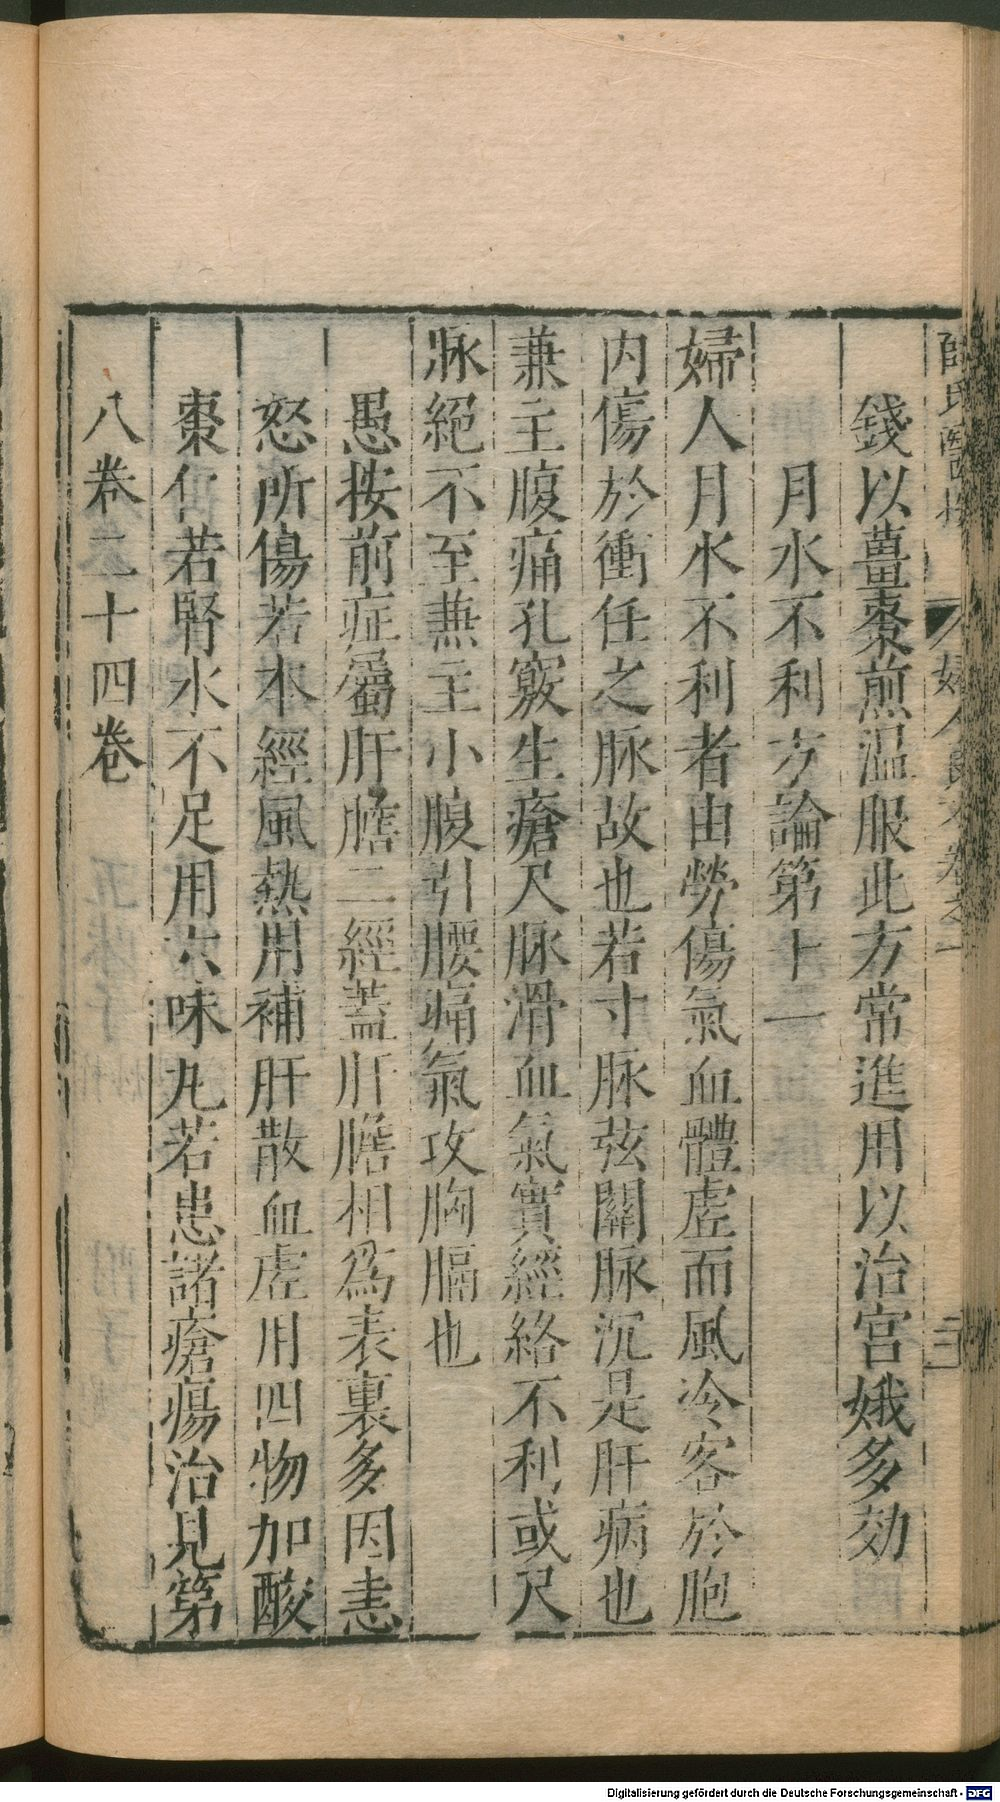 錢以薑棗煎温服此方常進用以治宫娥多効
月水不利方論第十一
婦人月水不利者由勞傷氣血體虚而風冷客於胞
内傷於衝任之脉故也若寸脉弦關脉沉是肝病也
兼主腹痛孔竅生瘡尺脉滑血氣實經絡不利或尺
脉絕不至兼主小腹引腰痛氣攻胸膈也
愚按前症屬肝膽二經蓋肝膽相爲表裏多因恚
怒所傷若本經風熱用補肝散血虚用四物加酸
棗仁若腎水不足用六味丸若患諸瘡瘍治見第
八卷二十四卷
Digitalisierung gefördert durch die Deutsche Forschungsgemeinschaft - DFG